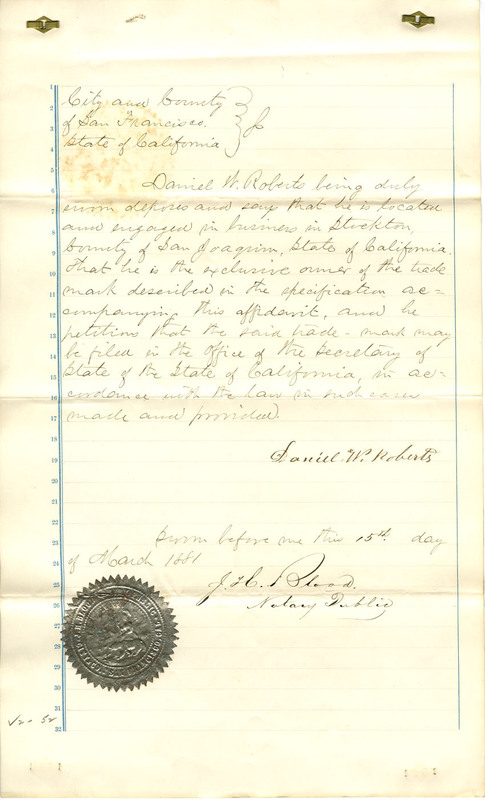 City and County
of San Francisco.
State of California
Daniel W. Roberts being duly
sworn deposes and says that he is located
and engaged in business in Stockton,
County of San Joaquin, State of California.
That he is the exclusive owner of the trade
mark described in the specification ac=
companying this affidavit, and he
petitions that the said trade-mark may
be filed in the Office of the Secretary of
State of the State of California, in ac=
cordance with the law in such cases
made and provided.
Daniel W. Roberts
Sworn before me this 15th day
of March 1881
J. H. Blood.
Notary Public
1
2
3
4
5
6
7
8
9
10
11
12
13
14
15
16
17
18
19
20
21
22
23
24
25
26
27
28
29
30
31
32